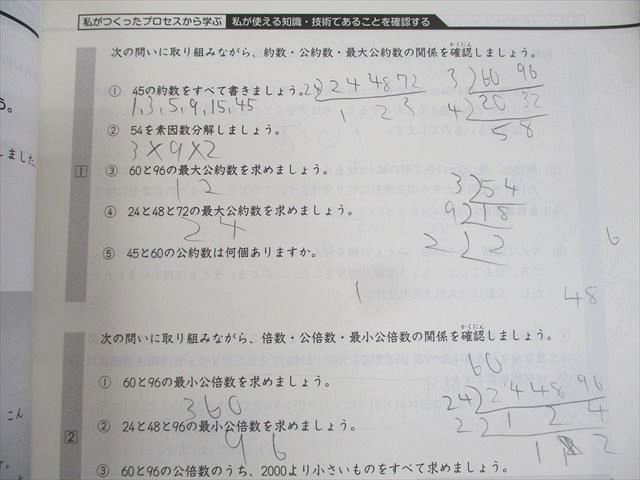 私がつくったプロセスから学ぶ 私が使える知識・技術であることを確認する
次の問いに取り組みながら、約数・公約数・最大公約数の関係を確認しましょう。
かくにん
1
① 45の約数をすべて書きましょう。
1,3,5,9,15,45
24)24 48 72
1 2 3
3)60 96
4)20 32
5 8
② 54を素因数分解しましょう。
3×9×2
③ 60と96の最大公約数を求めましょう。
12
④ 24と48と72の最大公約数を求めましょう。
24
3)54
9)18
2)2
⑤ 45と60の公約数は何個ありますか。
1
6
48
次の問いに取り組みながら、倍数・公倍数・最小公倍数の関係を確認しましょう。
かくにん
2
① 60と96の最小公倍数を求めましょう。
360
60
24)24 48 96
2)1 2 4
1 1 2
② 24と48と96の最小公倍数を求めましょう。
96
③ 60と96の公倍数のうち、2000より小さいものをすべて求めましょう。
う。
しました
こん